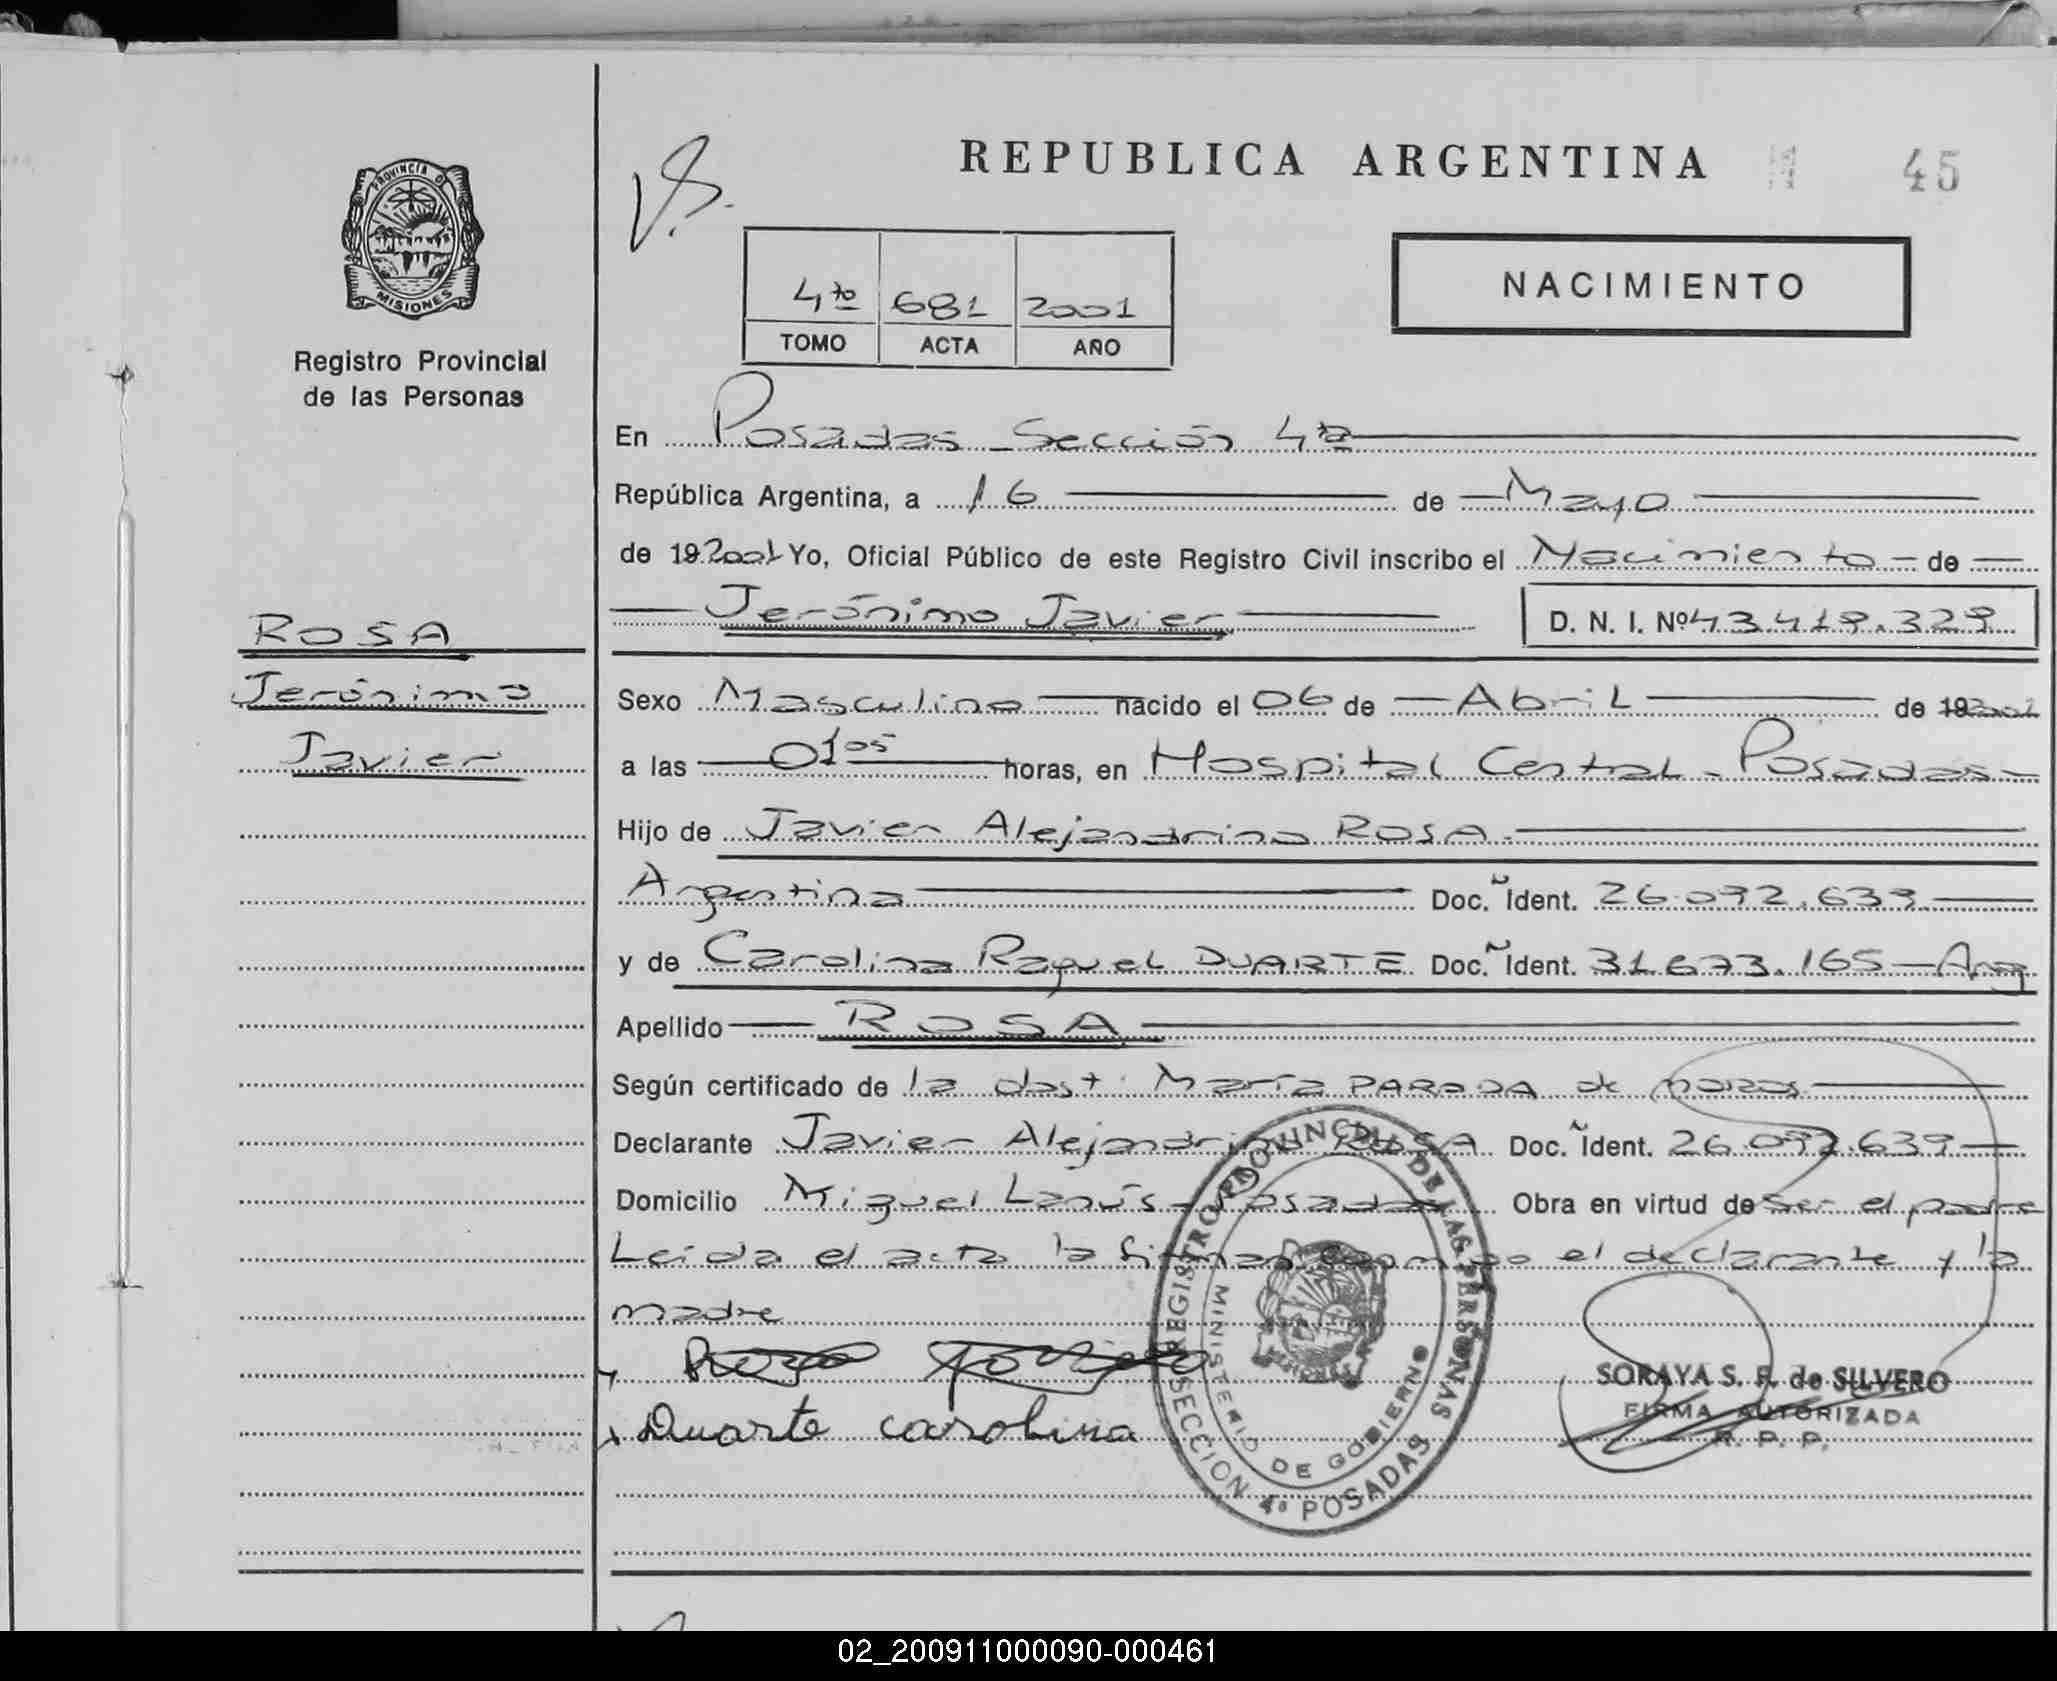 REPUBLICA ARGENTINA
45
PROVINCIA DE
MISIONES
Registro Provincial
de las Personas
NACIMIENTO
4to 681 2001
TOMO ACTA AÑO
En Posadas - Sección 4ta
República Argentina, a 16 de Mayo
de 19 2001 Yo, Oficial Público de este Registro Civil inscribo el Nacimiento de
Jerónimo Javier D. N. I. Nº 43.419.329
ROSA
Jerónimo
Javier
Sexo Masculino nacido el 06 de Abril de 19 2001
a las 01 05 horas, en Hospital Central - Posadas
Hijo de Javier Alejandrino ROSA
Argentina Doc. Ident. 26.092.639
y de Carolina Raquel DUARTE Doc. Ident. 31.673.165 - Arg
Apellido ROSA
Según certificado de la obst. María PARODA de
Declarante Javier Alejandrino ROSA Doc. Ident. 26.092.639
Domicilio Miguel Lanús - Posadas Obra en virtud de ser el padre
Leída el acta la firman conmigo el declarante y la
madre
Duarte carolina
REGISTRO PROVINCIAL DE LAS PERSONAS
MINISTERIO DE GOBIERNO
SECCION 4ª POSADAS
SORAYA S. R. de SILVERO
FIRMA AUTORIZADA
R. P. P.
02_200911000090-000461